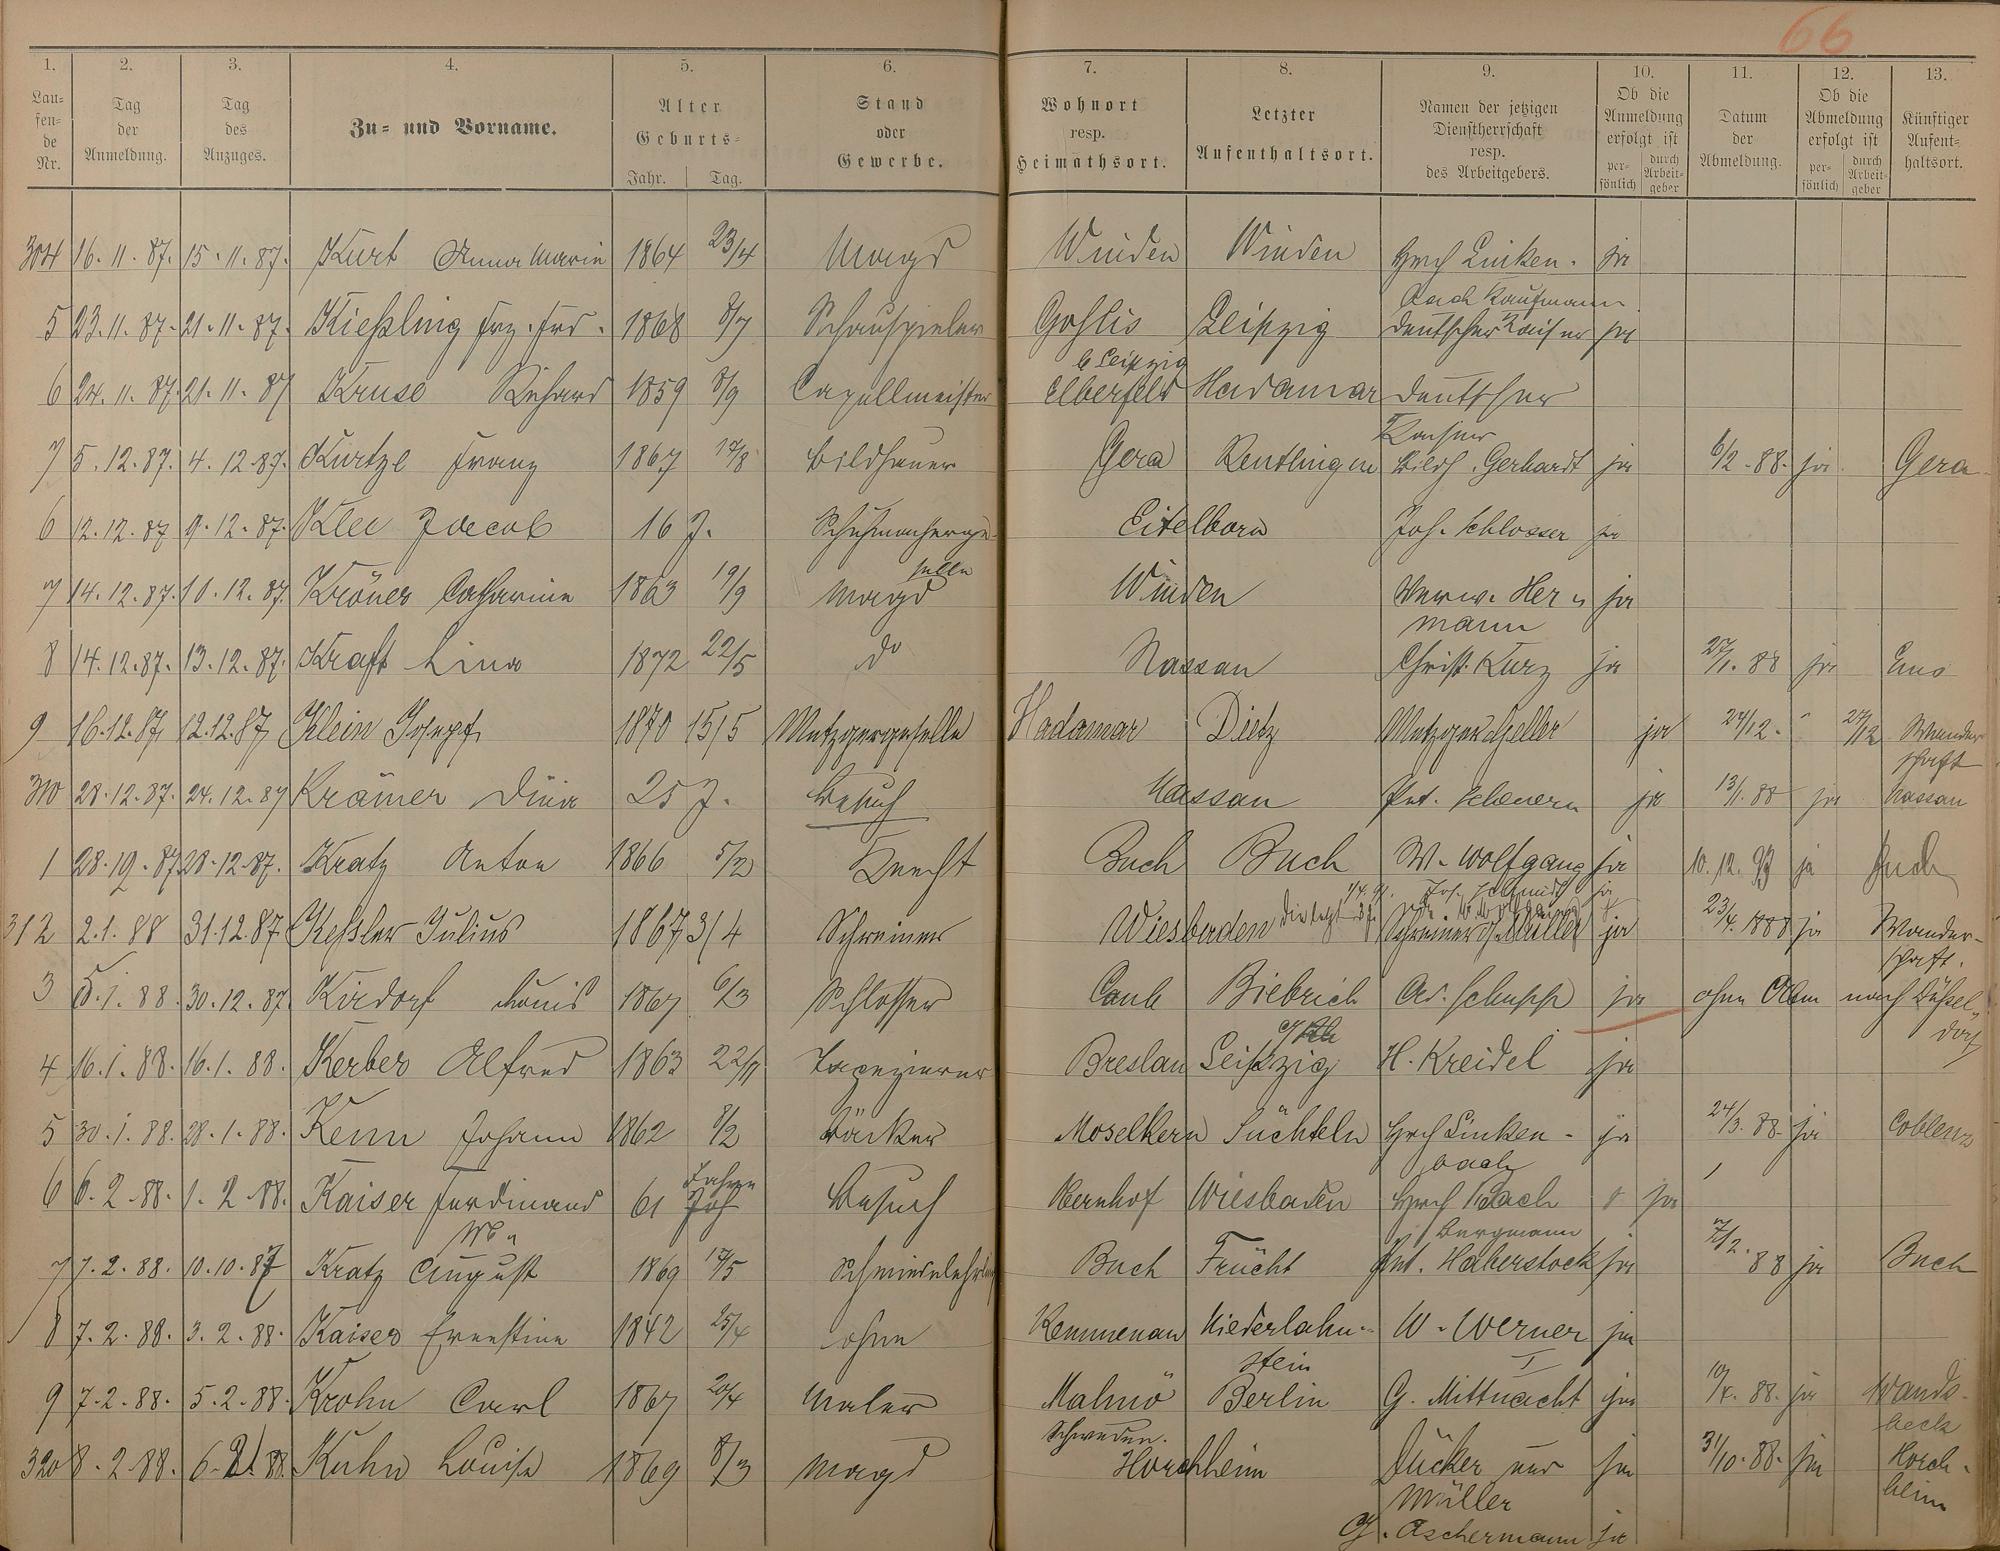 66
1. 2. 3. 4. 5. 6. 7. 8. 9. 10. 11. 12. 13.
Laufende Nr. Tag der Anmeldung. Tag des Anzuges. Zu- und Vorname. Alter Geburts- Jahr. Tag. Stand oder Gewerbe. Wohnort resp. Heimathsort. Letzter Aufenthaltsort. Namen der jetzigen Dienstherrschaft resp. des Arbeitgebers. Ob die Anmeldung erfolgt ist persönlich durch Arbeitgeber Datum der Abmeldung. Ob die Abmeldung erfolgt ist persönlich durch Arbeitgeber Künftiger Aufenthaltsort.
304 16.11.87. 15.11.87. Kurt Anna Marie 1864 23/4 Magd Winden Winden Hrch Linken- ja
bach Kaufmann
5 23.11.87. 21.11.87. Kießling Frz. Frd. 1868 8/7 Schauspieler Gohlis Leipzig Deutscher Kaiser ja
b Leipzig
6 24.11.87. 21.11.87 Kruse Richard 1859 8/9 Capellmeister Elberfeld Hadamar Deutscher
Kaiser
7 5.12.87. 4.12.87. Kurtze Franz 1867 17/8 Bildhauer Gera Reutlingen Bildh. Gerhardt ja 6/2.88. ja Gera
6 12.12.87 9.12.87. Klee Jacob 16 J. Schuhmacherge-
selle Eitelborn Joh. Schlosser ja
7 14.12.87. 10.12.87. Kröner Catharine 1863 19/9 Magd Winden Verw. Her-
mann ja
8 14.12.87. 13.12.87. Kraft Lina 1872 22/5 do Nassau Christ. Kurz ja 27/1.88 ja Ems
9 16.12.87. 12.12.87 Klein Joseph 1870 15/5 Metzgergeselle Hadamar Dietz Metzger Heller ja 24/12. " 27/12 Wander
schaft
310 28.12.87. 24.12.87 Krämer Dina 25 J. Besuch Nassau Pet. ja 13/1.88 ja Nassau
1 28.12.87 28.12.87. Kratz Anton 1866 5/2 Knecht Buch Buch W. Wolfgang ja 10.12.93 ja Buch
Jos. Schmidt ja
312 2.1.88 31.12.87. Keßler Julius 1867 3/4 Schreiner Wiesbaden Schreiner Müller ja 23/4.1888 ja Wander-
schaft.
3 5.1.88. 30.12.87. Kirdorf Louis 1867 6/3 Schlosser Caub Biebrich Ad. Schupp ja ohne Abm nach Düssel-
dorf
4 16.1.88. 16.1.88. Kerber Alfred 1863 22/11 Tapezierer Breslau Leipzig H. Kreidel ja
5 30.1.88. 28.1.88. Kenn Johann 1862 8/2 Bäcker Moselkern Süchteln Hrch Linken-
bach ja 24/3.88. ja Coblenz
6 6.2.88. 1.2.88. Kaiser Ferdinand 61 Jahre Besuch Obernhof Wiesbaden Hrch Bach
Bergmann ja
7 7.2.88. 10.10.87 Kratz August 1869 17/5 Schmiedelehrling Buch Frücht Ant. Haberstock ja 7/2.88 ja Buch
8 7.2.88. 3.2.88. Kaiser Ernestine 1842 25/4 ohne Kemmenau Niederlahn-
stein W. Werner I ja
9 7.2.88. 5.2.88. Krohn Carl 1867 20/4 Maler Malmö Berlin G. Mittnacht ja 10/4.88. ja Wands-
beck
Schweden.
320 8.2.88. 6.2.88. Kuhn Louise 1869 8/3 Magd Horchheim Dücker und
Müller ja 31/10.88. ja Horch-
heim
G. Aschermann ja